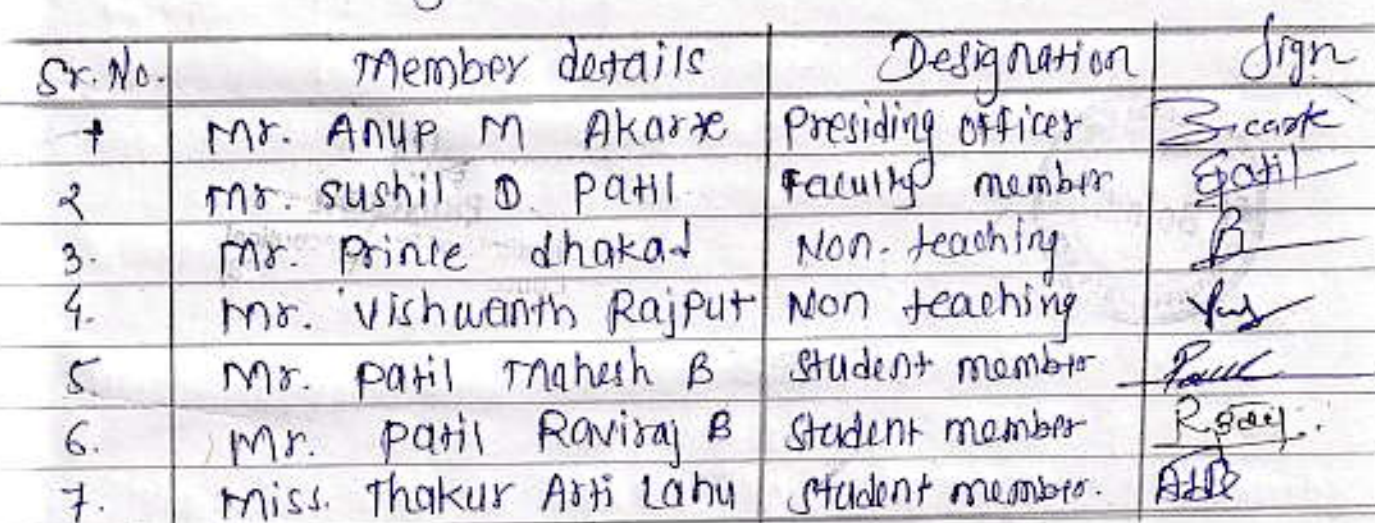 Sr. No. Member details Designation Sign
1 Mr. Anup M Akarte Presiding officer
2 Mr. Sushil D. Patil Faculty member
3. Mr. Prince dhakad Non-teaching
4. Mr. Vishwanth Rajput Non teaching
5. Mr. Patil Mahesh B Student member
6. Mr. Patil Raviraj B Student member
7. Miss. Thakur Arti Lahu Student member.